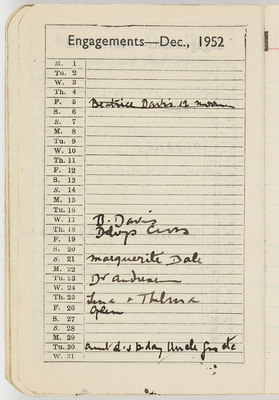 Engagements—Dec., 1952
M. 1
Tu. 2
W. 3
Th. 4
F. 5 Beatrice Davis 12 noon
S. 6
S. 7
M. 8
Tu. 9
W. 10
Th. 11
F. 12
S. 13
S. 14
M. 15
Tu. 16
W. 17 B. Davis
Th. 18
F. 19
S. 20
S. 21 Marguerite Dale
M. 22
Tu. 23 Dr Andreson
W. 24
Th. 25 Lena + Thelma
F. 26 Glen
S. 27
S. 28
M. 29
Tu. 30 Aunt d's bday Uncle Geo etc
W. 31